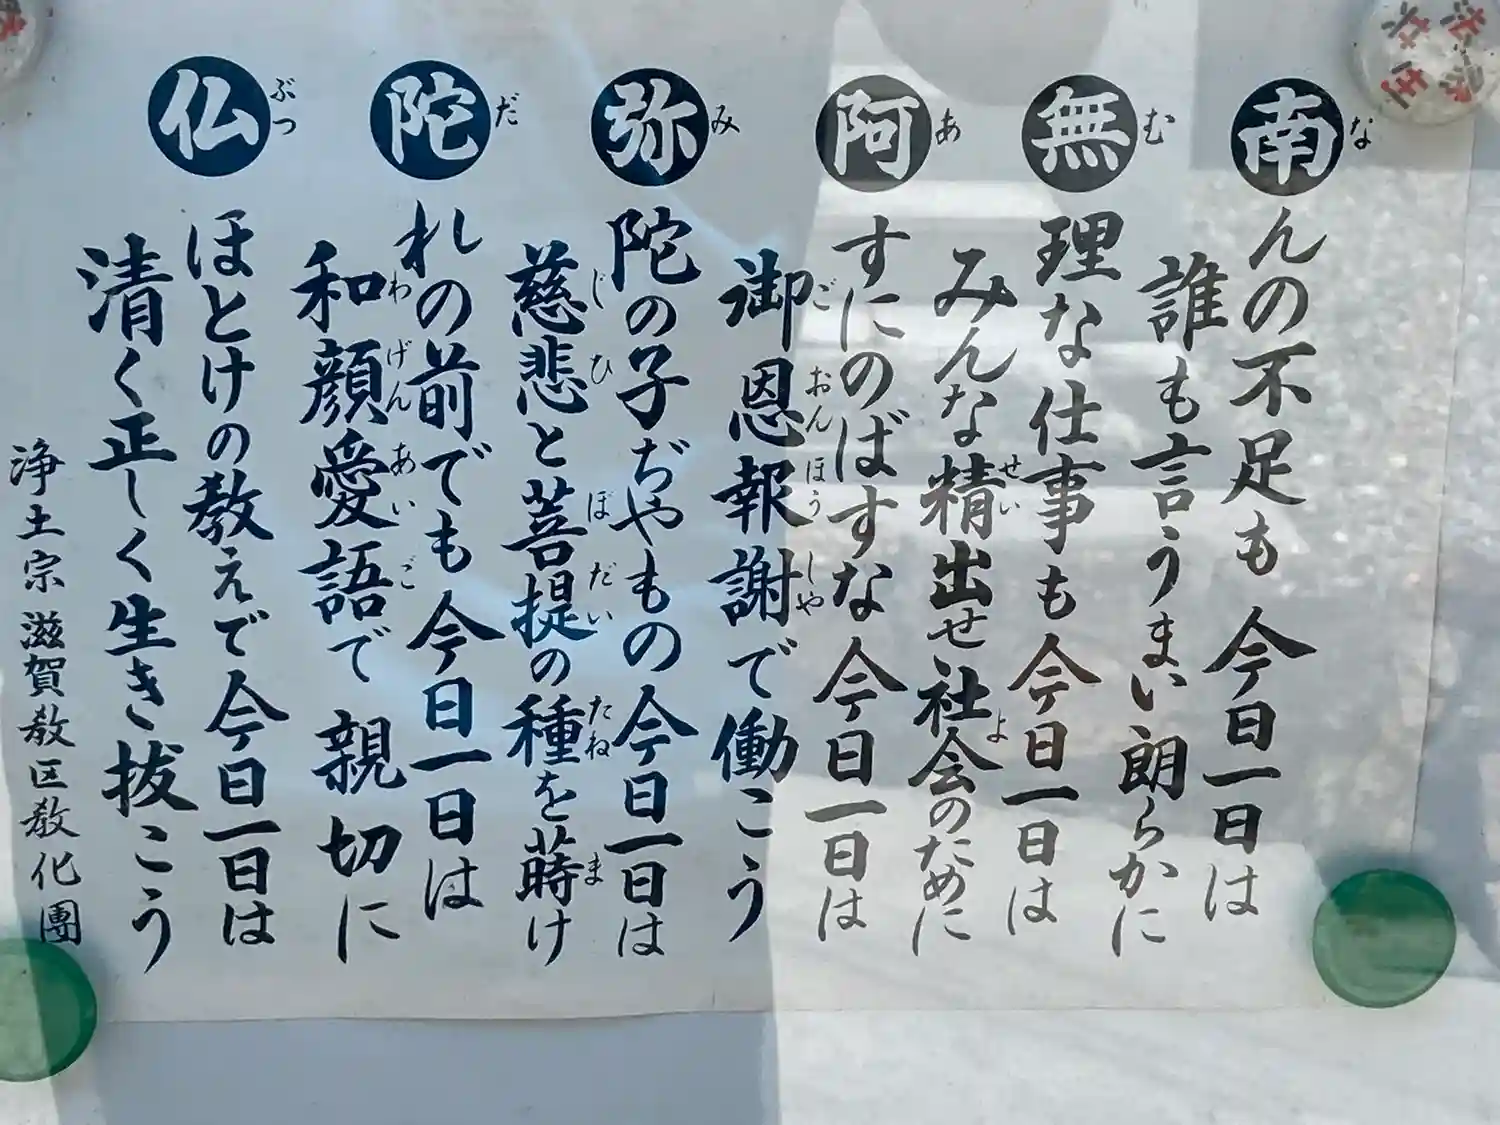 南んの不足も今日一日は
誰も言うまい朗らかに
無理な仕事も今日一日は
みんな精出せ社会のために
阿すにのばすな今日一日は
御恩報謝で働こう
弥陀の子ぢやもの今日一日は
慈悲と菩提の種を蒔け
陀れの前でも今日一日は
和顔愛語で親切に
仏ほとけの教えで今日一日は
清く正しく生き抜こう
浄土宗滋賀教区教化團
な
む
せい
よ
あ
ごおんほうしや
み
じひ
ぼだい
たね
ま
だ
わげんあいご
ぶつ